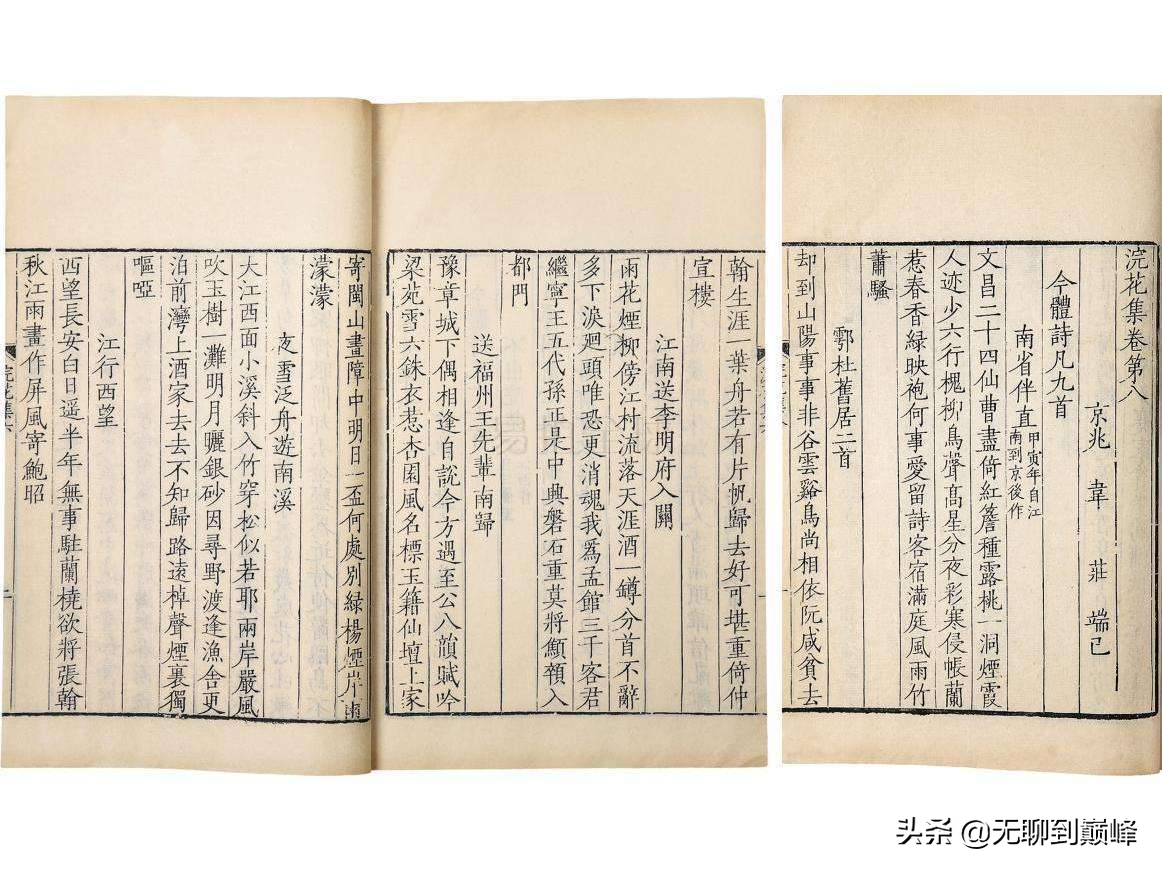 浣花集卷第八
京兆 韋 莊 端己
今體詩凡九首
南省伴直甲寅年自江南到京後作
文昌二十四仙曹盡倚紅簷種露桃一洞煙霞
人迹少六行槐柳鳥聲高星分夜彩寒侵帳蘭
惹春香緑映袍何事愛留詩客宿滿庭風雨竹
蕭騷
鄠杜舊居二首
却到山陽事事非谷雲谿鳥尚相依阮咸貧去
翰生涯一葉舟若有片帆歸去好可堪重倚仲
宣樓
江南送李明府入關
雨花煙柳傍江村流落天涯酒一罇分首不辭
多下淚迴頭唯恐更消魂我爲孟館三千客君
繼寧王五代孫正是中興磐石重莫將顦顇入
都門
送福州王先輩南歸
豫章城下偶相逢自説今方遇至公八韻賦吟
梁苑雪六銖衣惹杏園風名標玉籍仙壇上家
寄閩山畫障中明日一盃何處別緑楊煙岸雨
濛濛
夜雪泛舟遊南溪
大江西面小溪斜入竹穿松似若耶兩岸嚴風
吹玉樹一灘明月曬銀砂因尋野渡逢漁舎更
泊前灣上酒家去去不知歸路遠棹聲煙裏獨
嘔啞
江行西望
西望長安白日遥半年無事駐蘭橈欲將張翰
秋江雨畫作屏風寄鮑昭
浣花集六
头条 @无聊到巅峰